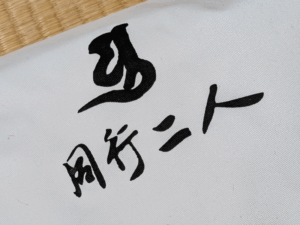 同行二人